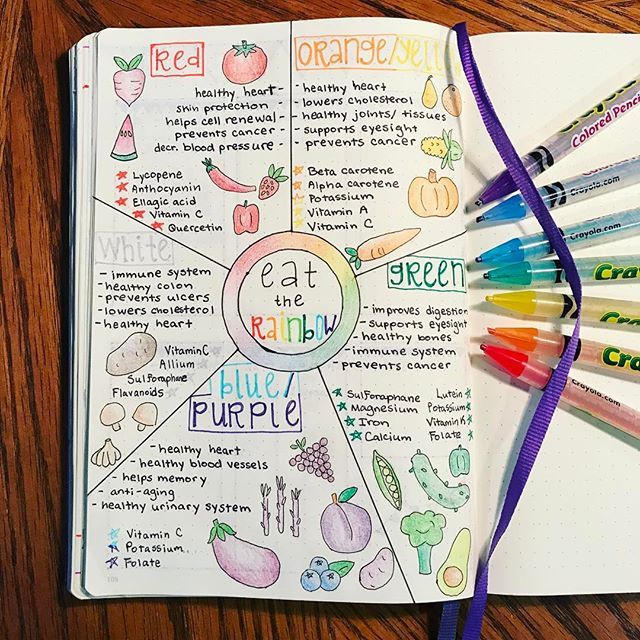 Red
healthy heart -
skin protection -
helps cell renewal -
prevents cancer -
decr. blood pressure -
Lycopene
Anthocyanin
Ellagic acid
Vitamin C
Quercetin
Orange/yell
- healthy heart
- lowers cholesterol
- healthy joints/ tissues
- supports eyesight
- prevents cancer
Beta carotene
Alpha carotene
Potassium
Vitamin A
Vitamin C
White
- immune system
- healthy colon
- prevents ulcers
- lowers cholesterol
- healthy heart
Vitamin C
Allium
Sulforaphane
Flavanoids
eat
the
Rainbow
green
- improves digestion
- supports eyesight
- healthy bones
- immune system
- prevents cancer
Sulforaphane Lutein
Magnesium Potassium
Iron Vitamin K
Calcium Folate
blue/
PURPLE
- healthy heart
- healthy blood vessels
- helps memory
- anti-aging
- healthy urinary system
Vitamin C
Potassium
Folate
Crayola
Colored Penci
Crayola.com
Crayola.com
Cra
Crayola.com
Cra
Crayola.com
Cra
Crayola.com